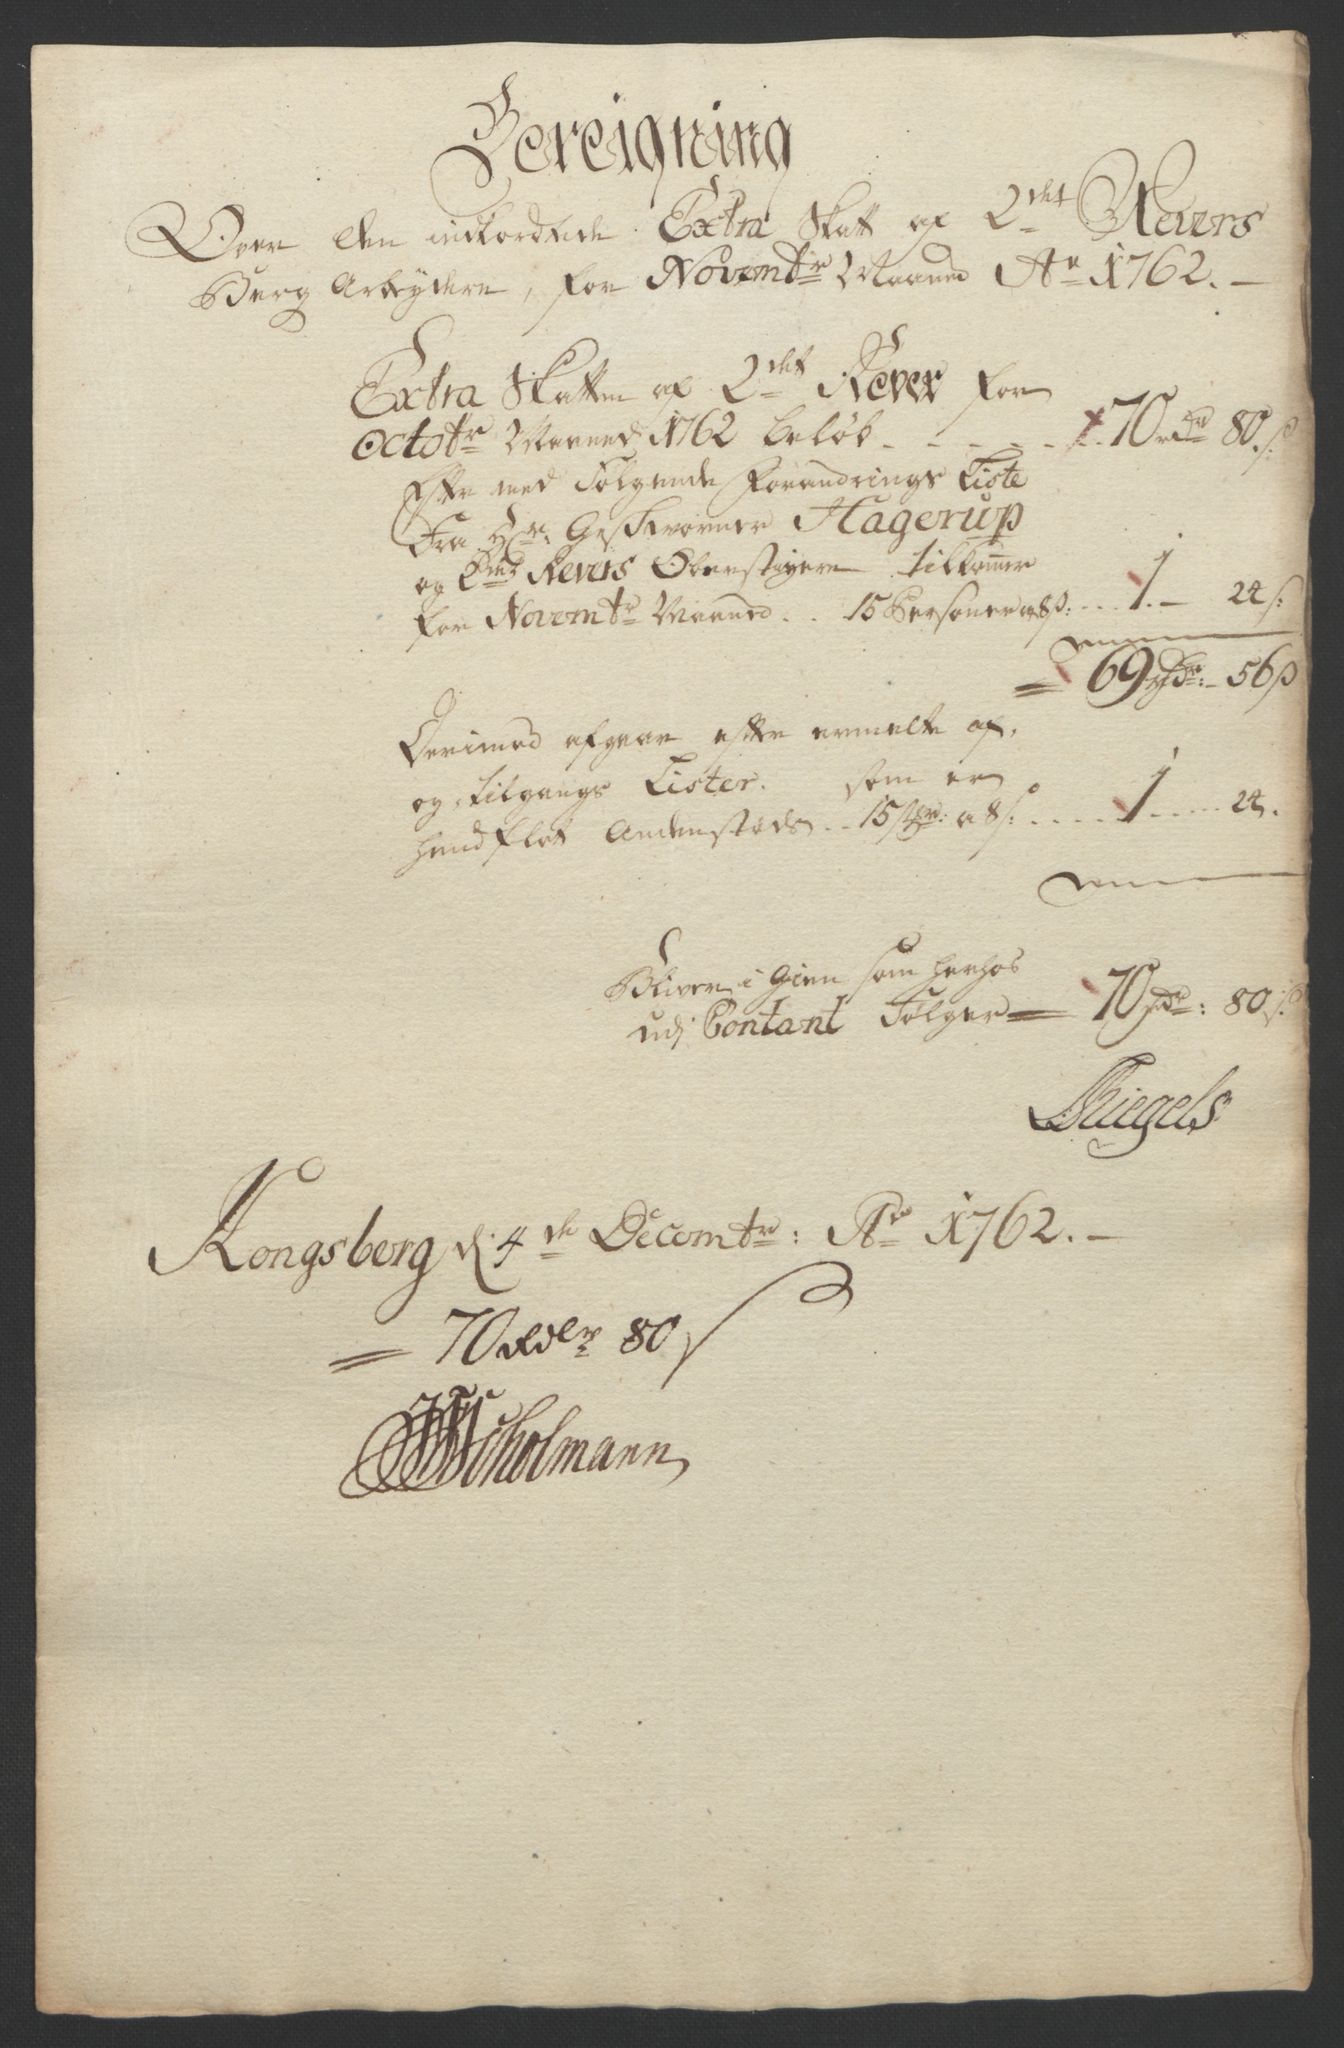 Bereigning
Over den indkordrede Extra Skatt af 2det Revers
Berg Arbeydere, for Novembr Maaned Ao 1762. —
Extra Skatten af 2det Rever for
Octobr Maaned 1762 beløb - - - - - 70 rdr 80 ß:
Efter med følgende Forandrings Liste
Fra Hr: Geschworner Hagerup
og 2det Revers Oberstigere tilkommer
for Novembr Maaned . . 15 Personer a 8 ß: . . . 1. — 24 ß:
= 69 rdr: - 56 ß
Derimod afgaar efter ermelte af,
og tilgangs Lister. som er
henfløt andenstæds . . 15 a 8 ß: . . . . . 1 . . . . 24.
Bliver i gien som herhos
udj Contant følger = 70 rdr: 80 ß:
Thiegels
Kongsberg d. 4de Decembr: Ao 1762. —
= 70 Rdlr 80 ß
Scholmann